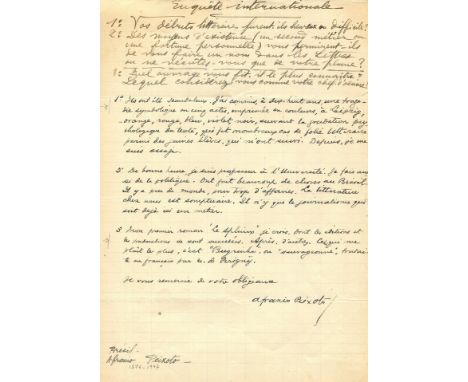 Enquête internationale
1º Vos débuts littéraires furent-ils heureux ou difficiles?
2º Des moyens d'existence (un second métier ou
une fortune personnelle) vous permirent-ils
de vous faire un nom dans les lettres
ou ne vécûtes-vous que de votre plume?
3º Quel ouvrage vous fit-il le plus connaître?
Lequel considérez-vous comme votre chef d'œuvre?
1º Ils ont été J'ai commis à dix-huit ans une tragé-
die symbolique en cinq actes, imprimée en couleurs, à Leipzig,
orange, rouge, bleu, violet, noir, suivant la gradation psy-
chologique du texte, qui fit montre de folie littéraire
parmi des jeunes élèves, qui m'ont suivi. Depuis, je me
suis assagi.
2º De bonne heure, je suis professeur à l'Université. J'ai fait aus-
si de la politique. On fait beaucoup de choses au Brésil.
Il y a peu de monde, pour trop d'affaires. La littérature
chez nous est somptuaire. Il n'y a que le journalisme qui
soit déjà un métier.
3 Mon premier roman "Le Sphinx", je crois. Dont les éditions et
les traductions se sont succédées. Après, d'autres. Celui qui me
plaît le plus, c'est "Bugrinha", ou "sauvageonne", traduit
en français par M. de Périgny.
Je vous remercie de votre obligeance
Afranio Peixoto
Brésil
Afranio Peixoto
1876-1947